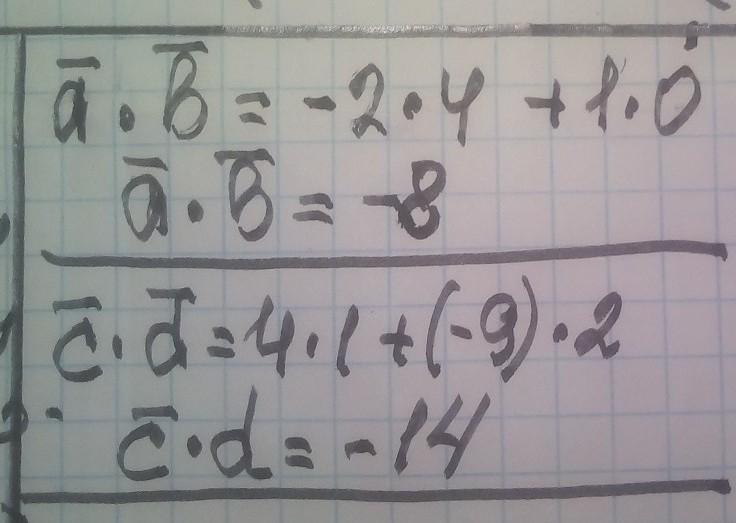 a̅ · b̅ = -2·4 + 1·0
a̅ · b̅ = -8
c̅ · d̅ = 4·1 + (-9)·2
c̅ · d = -14